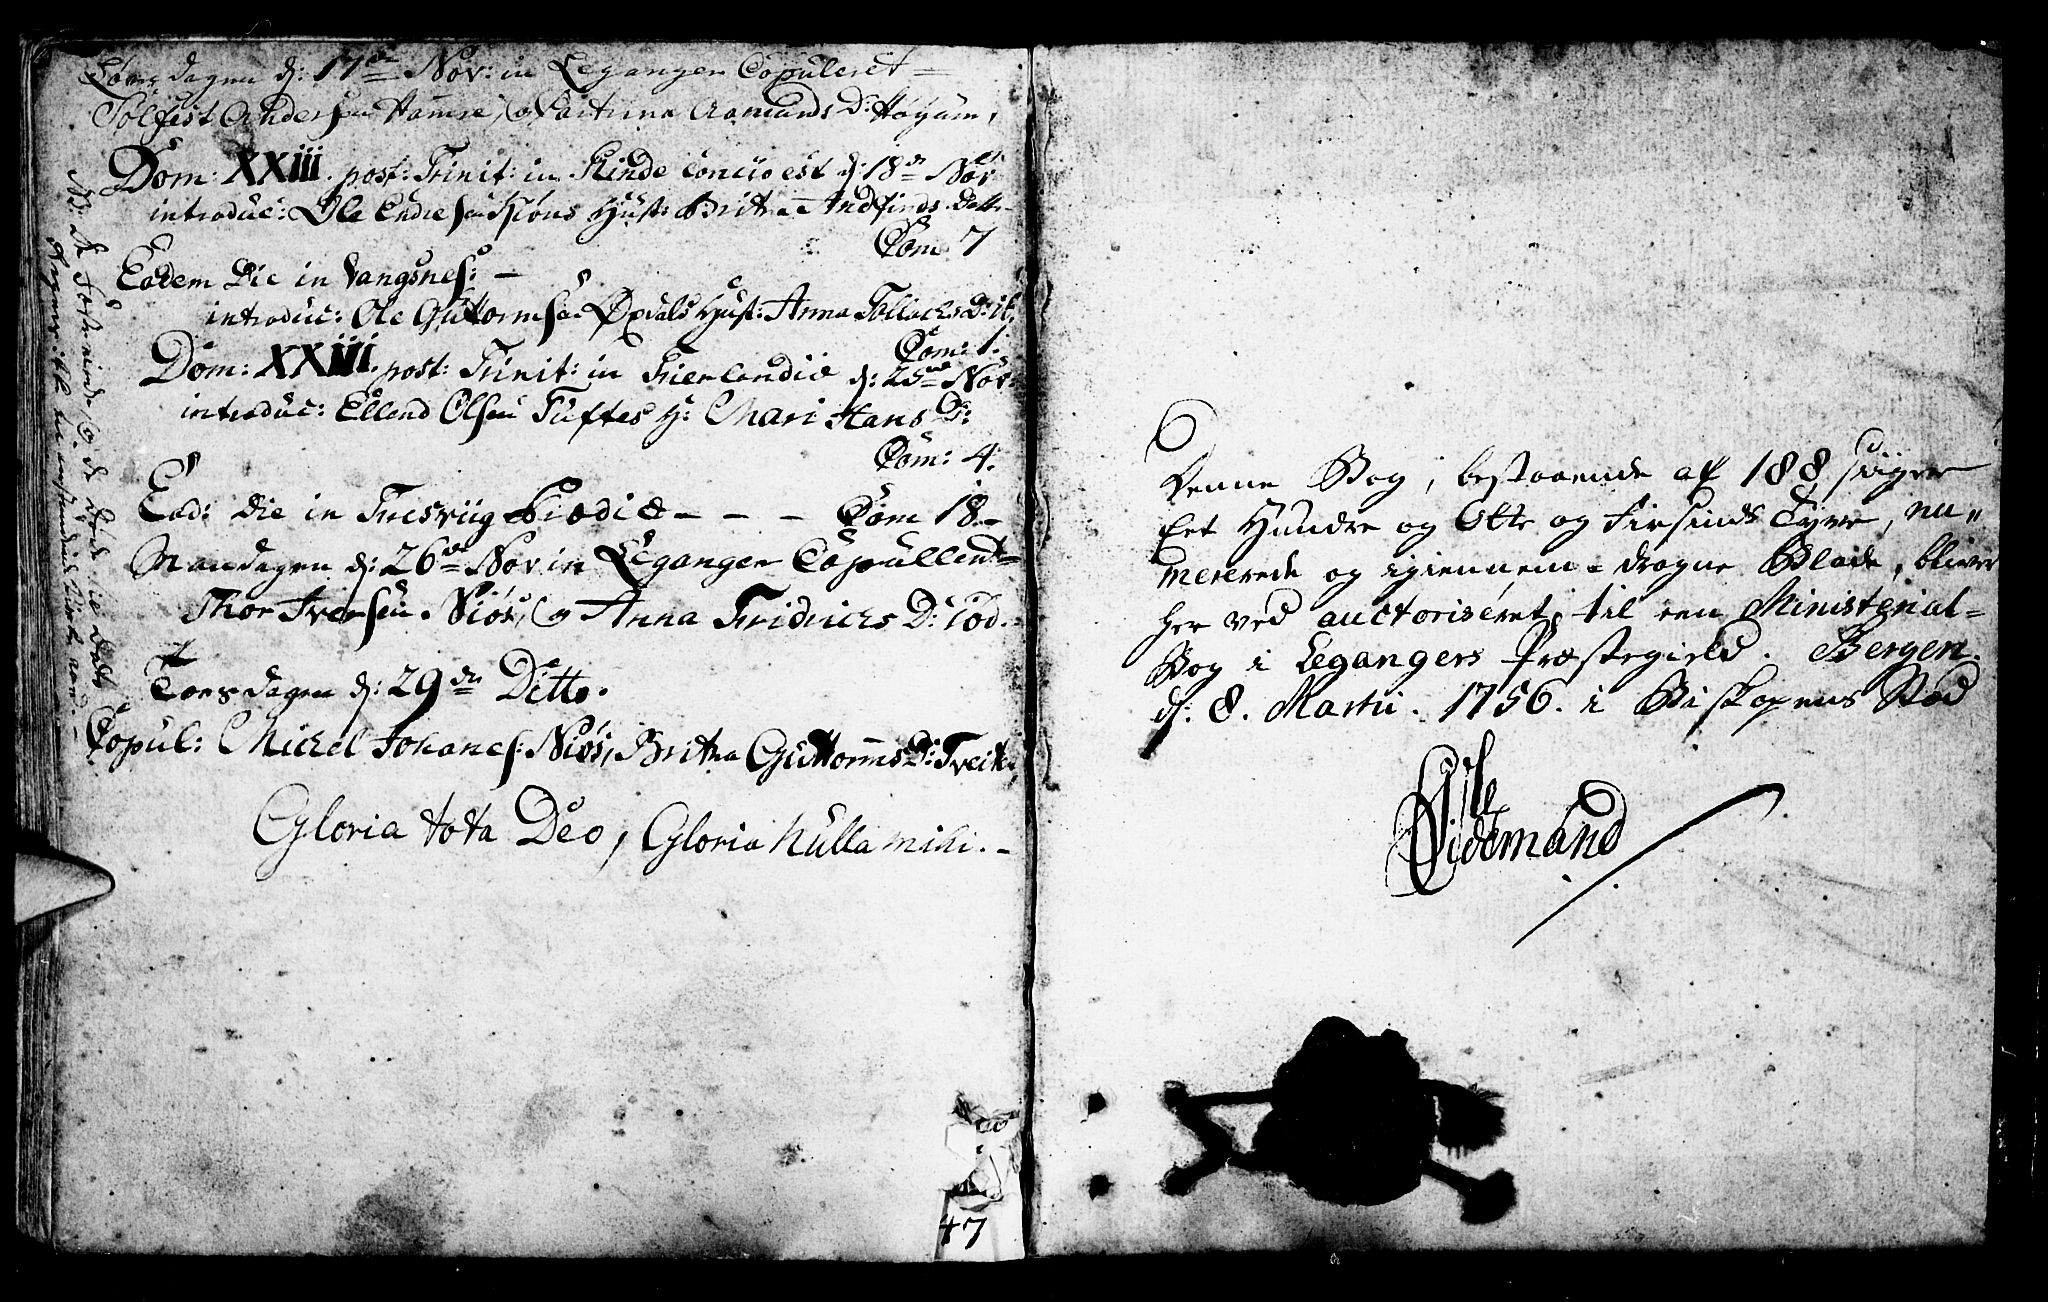 Løver dagen d: 17de Nov: in Leganger Copuleret
Tolfest Andersen Hamre, og Cartrina Aamunds D: Høyum,
Dom: XXIII. post: Trinit: in Rinde concio est d: 18de Nov
introduc: Ole Endresen Hust: Britha Andfinds Datter
Com 7
Eodem Die in Vangsnes: -
introduc: Ole Guttormsen Oxdals Hust: Anna Tollachs D: ib.
Com: 1.
Dom: XXIIII. post: Trinit: in Fierlandie d: 25de Nov:
introduc: Ellend Olsen Tuftes H: Mari Hans D:
Com: 4.
Eod: die in Tresviig Biødie - - - Com 18.
Mandagen d: 26de Nov in Leganger Copulleret
Thor Iversen Niøs, og Anna Fridrichs D: ibd.
Torsdagen d: 29de Ditto.
Copul: Michel Johanes: Niøs, Britha Guttorms D: Tveit
Gloria tota Deo, Gloria nulla mihi. -
NB: de
47
Denne Bog, bestaaende af 188, siger
Eet Hundre og Otte og Firsinds Tyve, nu„
mererede og igiennem-dragne Blade, bliver
her ved auctoriseret, til een Ministerial-
Bog i Legangers Præstegield. Bergen.
d: 8. Martii. 1756. i Biskopens Sted
Tidemand